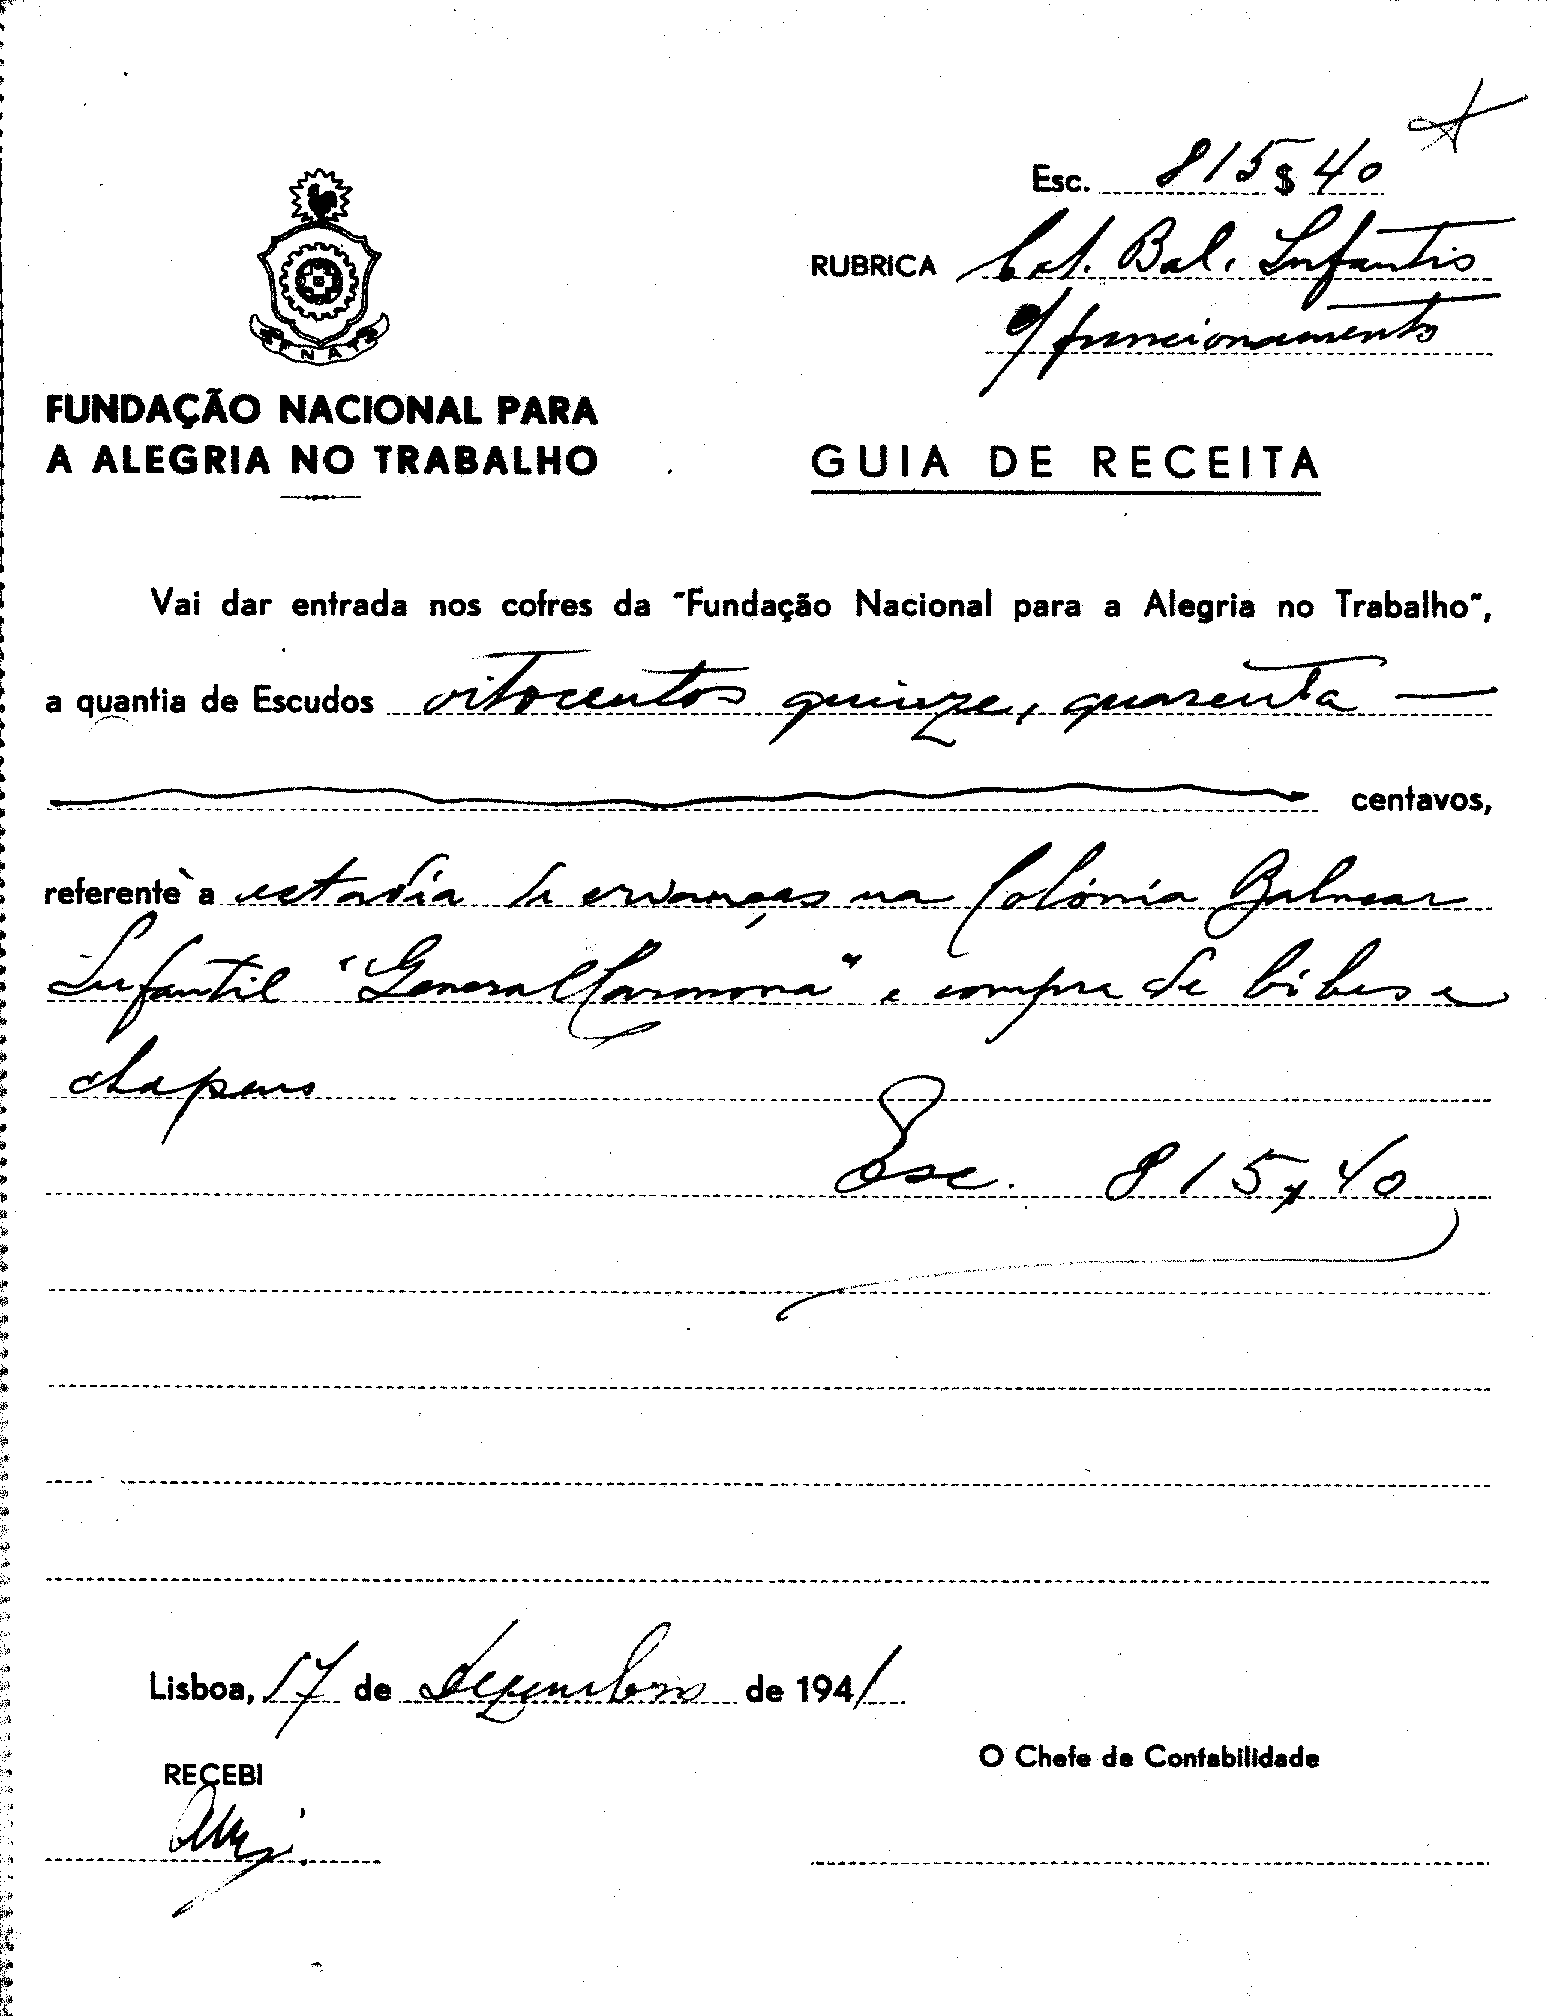 Esc. 815$40
RUBRICA Col. Bal. Infantis
c/ funcionamento
FNAT
FUNDAÇÃO NACIONAL PARA
A ALEGRIA NO TRABALHO
GUIA DE RECEITA
Vai dar entrada nos cofres da "Fundação Nacional para a Alegria no Trabalho",
a quantia de Escudos oitocentos quinze, quarenta —
centavos,
referente a estadia de crianças na Colónia Balnear
Infantil "General Carmona" e compra de bibes e
chapeus
Esc. 815$40
Lisboa, 17 de Dezembro de 1941
RECEBI
O Chefe de Contabilidade